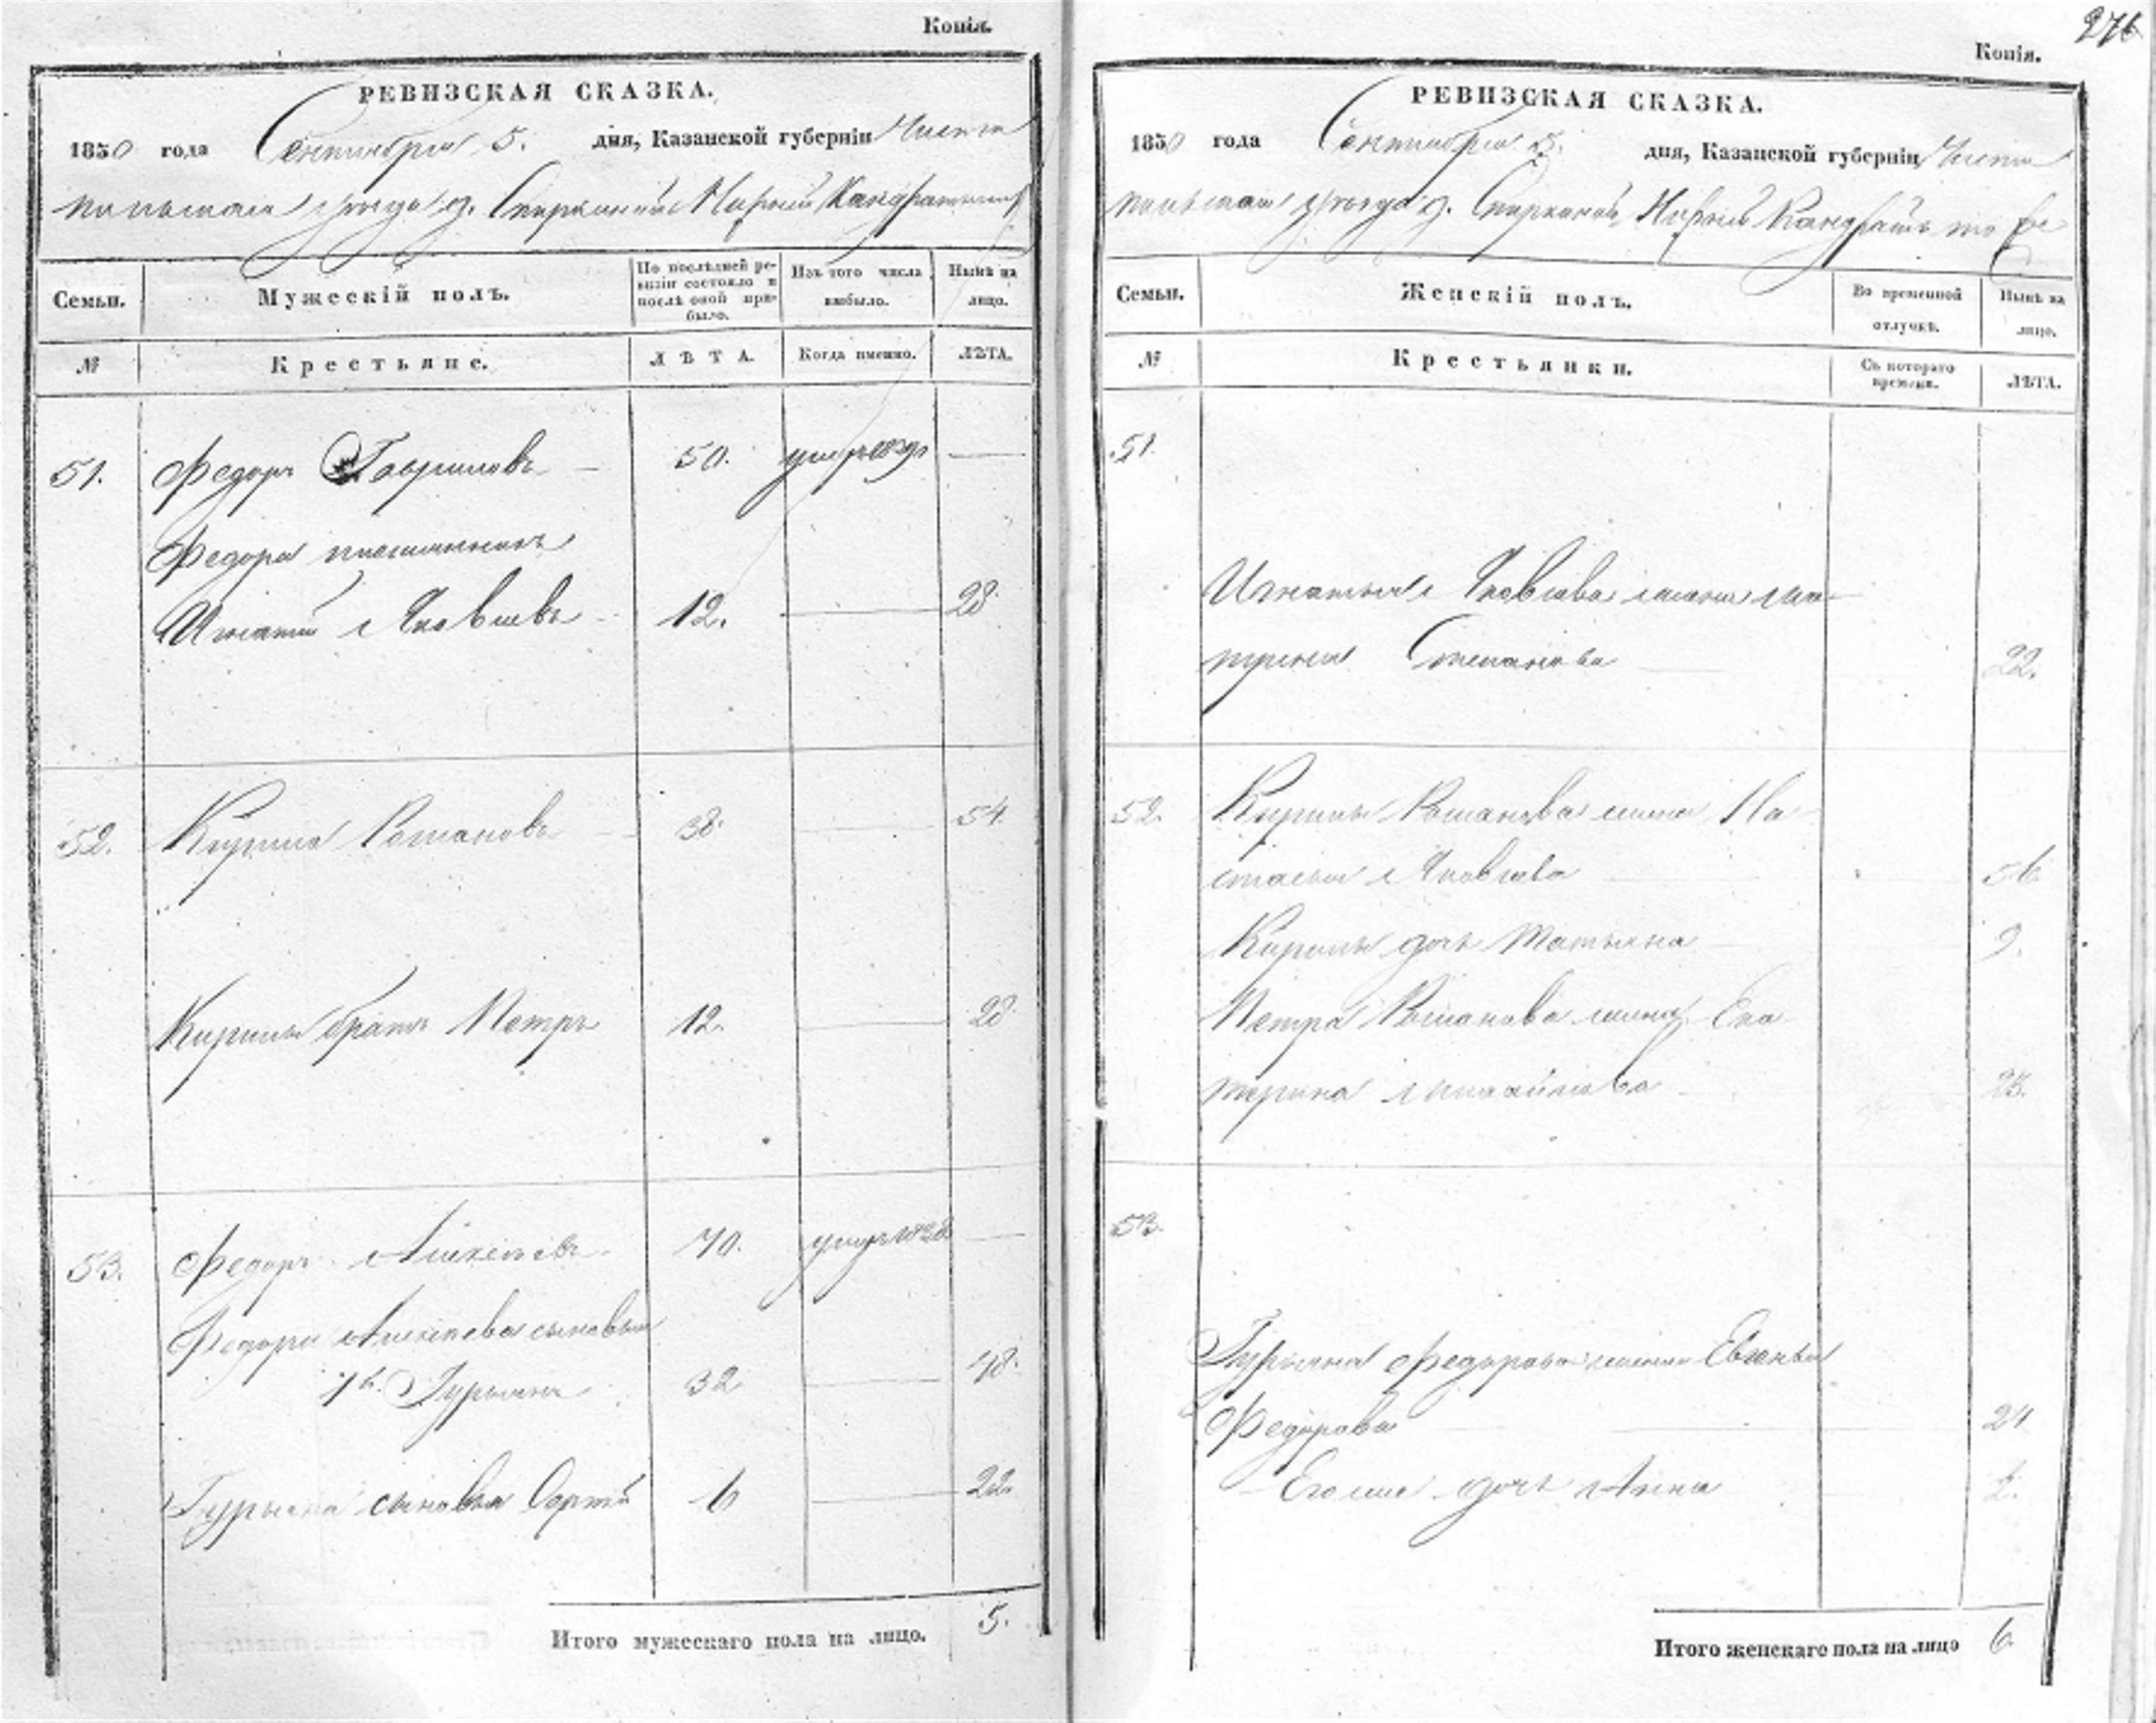 Копія.
РЕВИЗСКАЯ СКАЗКА.
1850 года Сентября 5. дня, Казанской губерніи Чисто
польскаго уѣзда д.
Семьи.
Мужескій полъ.
По послѣдней ре-
визіи состояло и
послѣ оной при-
было.
Изъ того числа
выбыло.
Нынѣ на
лицо.
№
Крестьяне.
ЛѢТА.
Когда именно.
ЛѢТА.
51. Федоръ Гавриловъ 50. умеръ
Федора племянникъ
Игнатій Яковлевъ 12. 28.
52. Кирила Романовъ 38. 54.
Кирилы братъ Петръ 12. 28.
53. Федоръ Алексѣевъ 70. умеръ
Федора Алексѣева сыновья
1й. Гурьянъ 32 48.
Гурьяна сыновья 6 22.
Итого мужескаго пола на лицо. 5.
276
Копія.
РЕВИЗСКАЯ СКАЗКА.
1850 года Сентября 5. дня, Казанской губерніи Чисто
польскаго уѣзда д.
Семьи.
Женскій полъ.
Во временной
отлучкѣ.
Нынѣ на
лицо.
№
Крестьянки.
Съ котораго
времени.
ЛѢТА.
51.
Игнатья Яковлева жена Ма
трена Степанова 22.
52. Кирилы Романова жена На
стасья Яковлева 56
Кирилы дочь Татьяна 9.
Петра Романова жена Ека
терина Михайлова
53.
Гурьяна Федорова жена Евгенья
Федорова
Его же дочь Анна 2.
Итого женскаго пола на лицо 6.